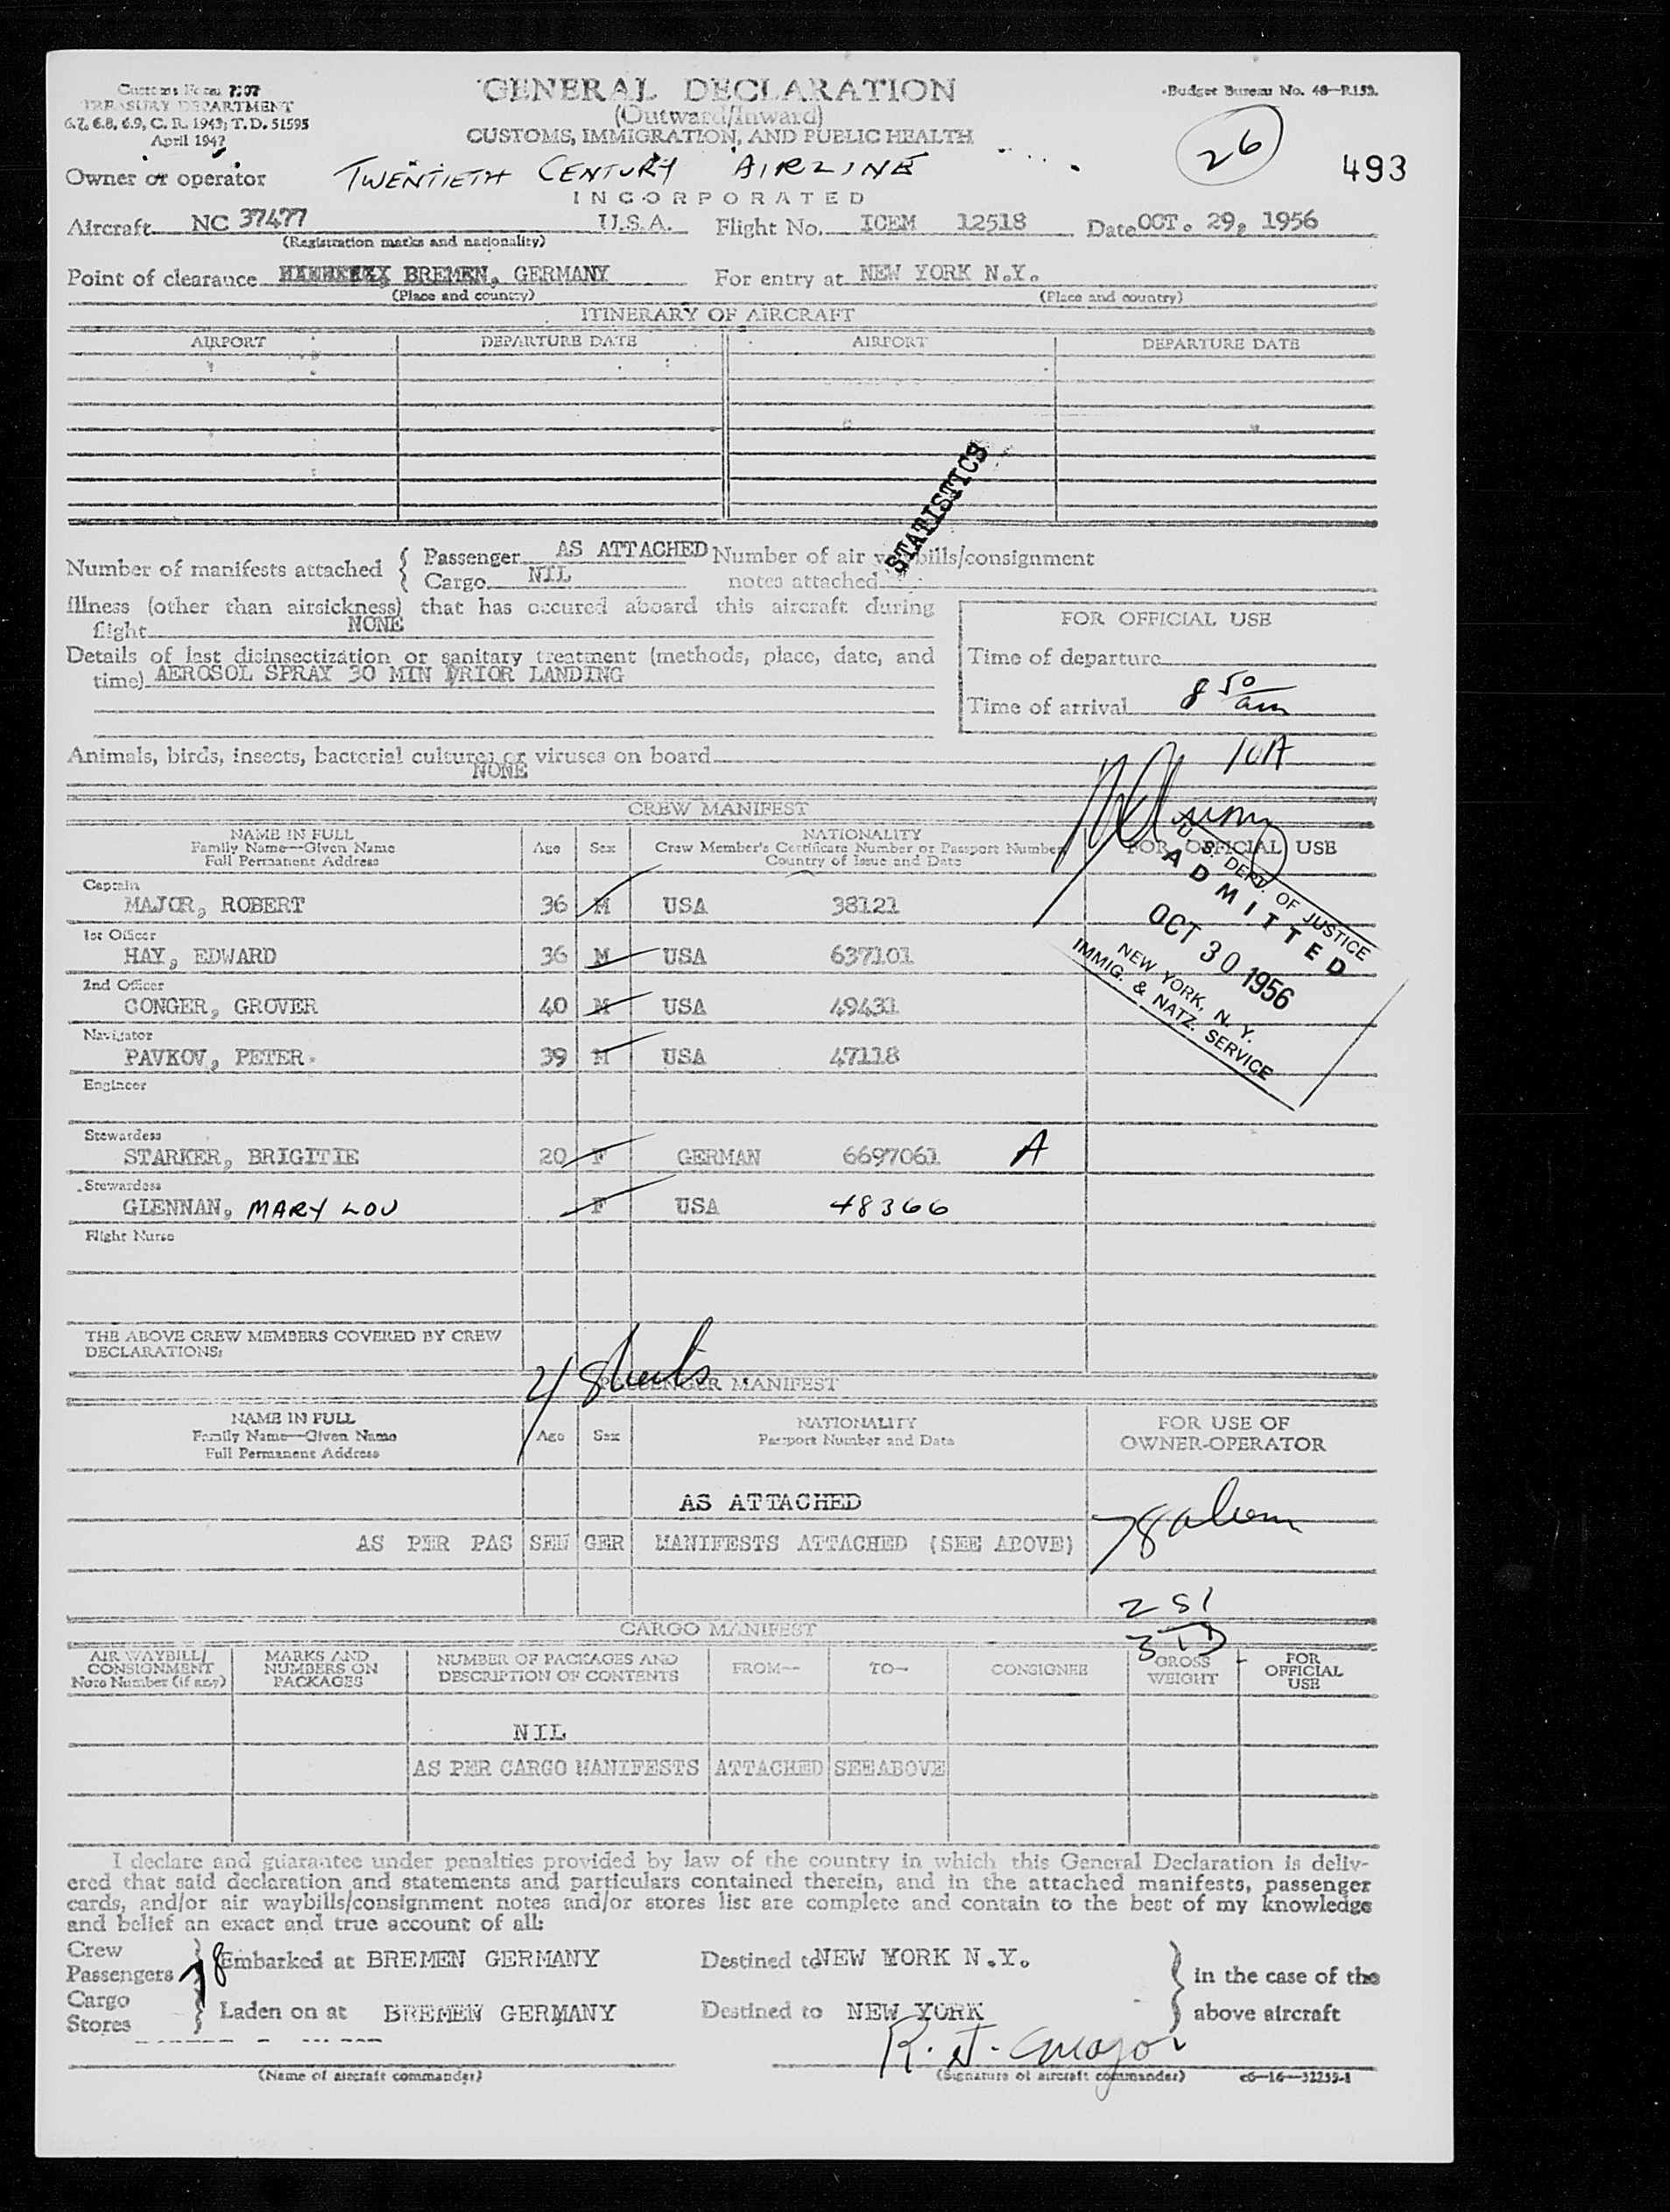 Customs Form 7507
TREASURY DEPARTMENT
6.7, 6.8, 6.9, C. R. 1943; T. D. 51595
April 1947
GENERAL DECLARATION
(Outward/Inward)
CUSTOMS, IMMIGRATION, AND PUBLIC HEALTH
Budget Bureau No. 48—R153.
26
493
Owner or operator TWENTIETH CENTURY AIRLINE
INCORPORATED
Aircraft NC 37477 U.S.A. Flight No. ICEM 12518 Date OCT. 29, 1956
(Registration marks and nationality)
Point of clearance BREMEN, GERMANY For entry at NEW YORK N.Y.
(Place and country) (Place and country)
ITINERARY OF AIRCRAFT
AIRPORT DEPARTURE DATE AIRPORT DEPARTURE DATE
STATISTICS
Number of manifests attached { Passenger AS ATTACHED Number of air waybills/consignment
Cargo NIL notes attached
Illness (other than airsickness) that has occured aboard this aircraft during
flight NONE
Details of last disinsectization or sanitary treatment (methods, place, date, and
time) AEROSOL SPRAY 30 MIN PRIOR LANDING
FOR OFFICIAL USE
Time of departure
Time of arrival 8 50 am
Animals, birds, insects, bacterial cultures or viruses on board
NONE
10A
CREW MANIFEST
NAME IN FULL
Family Name—Given Name
Full Permanent Address
Age Sex
NATIONALITY
Crew Member's Certificate Number or Passport Number
Country of Issue and Date
FOR OFFICIAL USE
Captain
MAJOR, ROBERT 36 M USA 38121
1st Officer
HAY, EDWARD 36 M USA 637101
2nd Officer
CONGER, GROVER 40 M USA 49431
Navigator
PAVKOV, PETER 39 M USA 47118
Engineer
Stewardess
STARKER, BRIGITIE 20 F GERMAN 6697061 A
Stewardess
GLENNAN, MARY LOU F USA 48366
Flight Nurse
U. S. DEPT. OF JUSTICE
ADMITTED
OCT 30 1956
NEW YORK, N. Y.
IMMIG. & NATZ. SERVICE
THE ABOVE CREW MEMBERS COVERED BY CREW
DECLARATIONS:
4 Sheets
PASSENGER MANIFEST
NAME IN FULL
Family Name—Given Name
Full Permanent Address
Age Sex
NATIONALITY
Passport Number and Date
FOR USE OF
OWNER-OPERATOR
AS ATTACHED
78 alien
AS PER PAS SEN GER MANIFESTS ATTACHED (SEE ABOVE)
CARGO MANIFEST
AIR WAYBILL/
CONSIGNMENT
Note Number (if any)
MARKS AND
NUMBERS ON
PACKAGES
NUMBER OF PACKAGES AND
DESCRIPTION OF CONTENTS
FROM— TO— CONSIGNEE
GROSS
WEIGHT
FOR
OFFICIAL
USE
NIL
AS PER CARGO MANIFESTS ATTACHED SEE ABOVE
I declare and guarantee under penalties provided by law of the country in which this General Declaration is deliv-
ered that said declaration and statements and particulars contained therein, and in the attached manifests, passenger
cards, and/or air waybills/consignment notes and/or stores list are complete and contain to the best of my knowledge
and belief an exact and true account of all:
Crew
Passengers 78 } Embarked at BREMEN GERMANY Destined to NEW YORK N.Y. } in the case of the
Cargo
Stores } Laden on at BREMEN GERMANY Destined to NEW YORK above aircraft
R. J. Major
(Name of aircraft commander) (Signature of aircraft commander) c6—16—52255-1